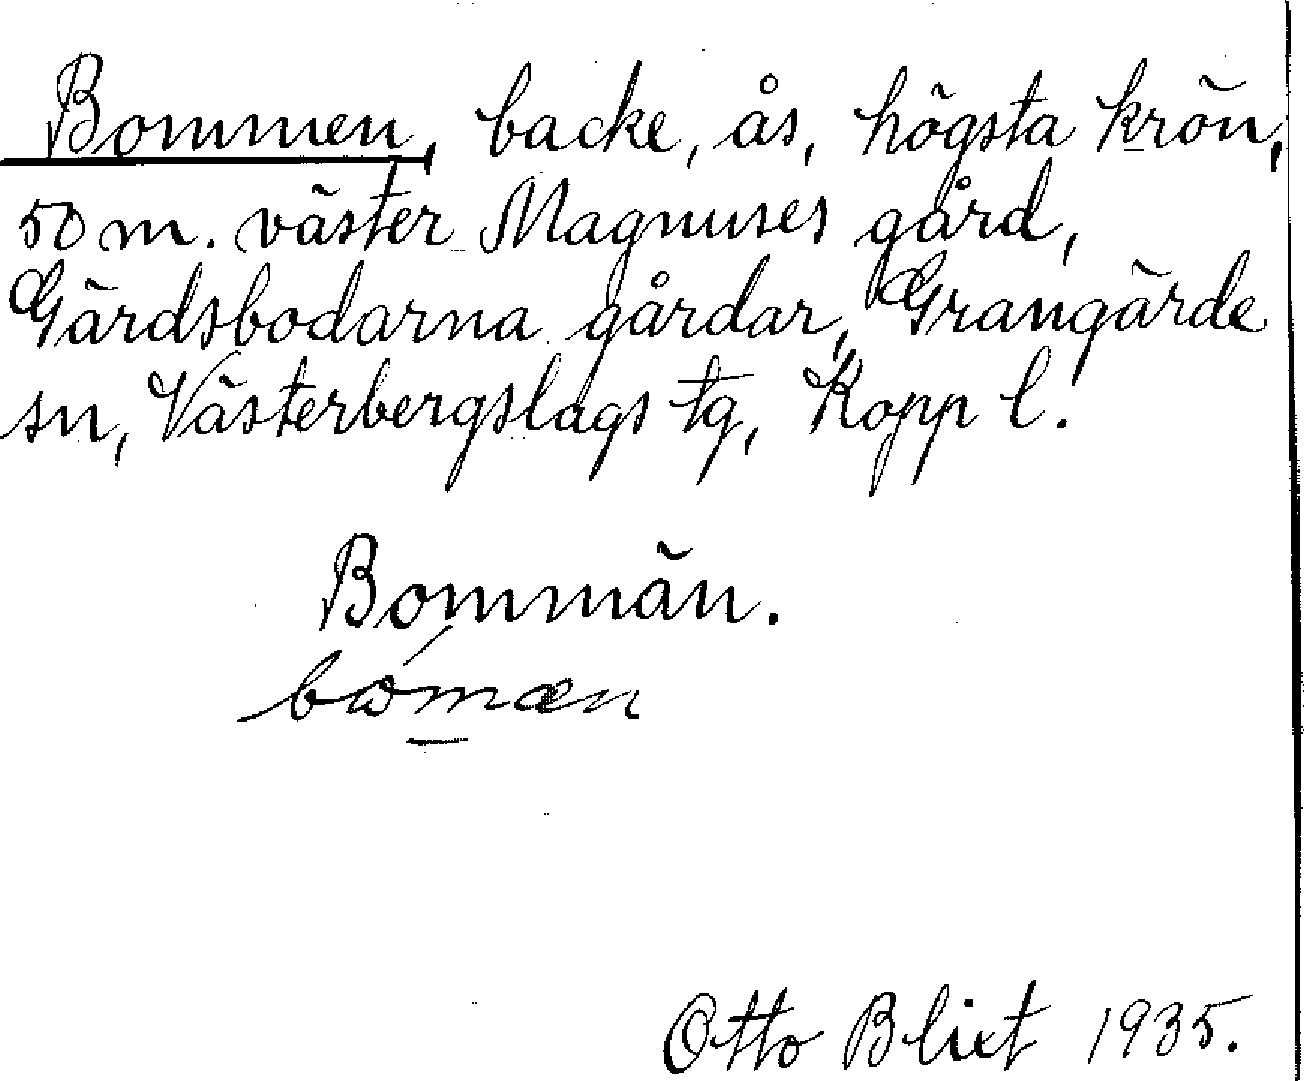 Bommen, backe, ås, högsta krön,
50 m. väster Magnuses gård,
Gärdsbodarna gårdar, Grangärde
sn, Västerbergslags tg, Kopp l.
Bommän.
bωmæn
Otto Blixt 1935.